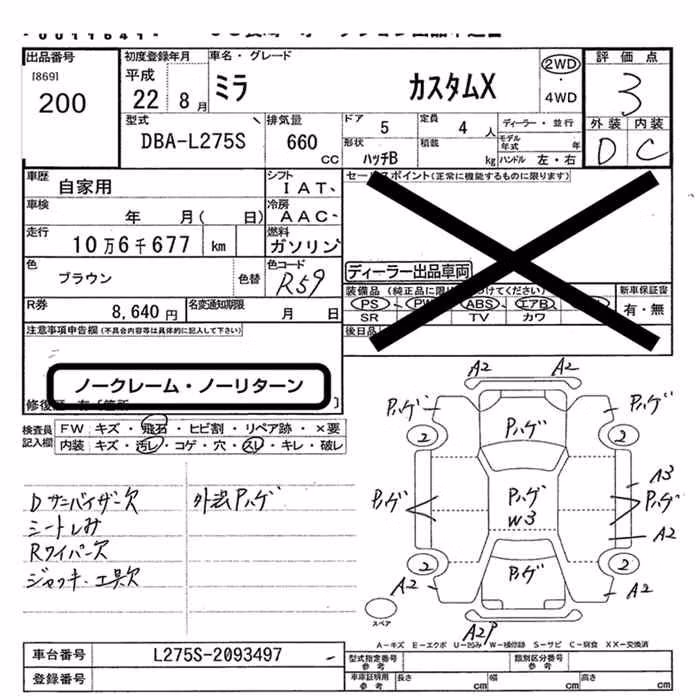 出品番号
[869]
200
初度登録年月
平成
22 8月
車名・グレード
ミラ カスタムX
2WD
・
4WD
評価点
3
外装 内装
D C
型式
DBA-L275S
排気量
660
CC
ドア
5
定員
4 人
形状
ハッチB
積載
kg
ディーラー・並行
モデル年式 年
ハンドル 左・右
車歴
自家用
シフト
IAT
車検
年 月( 日)
冷房
AAC
走行
10万6千677 km
燃料
ガソリン
色
ブラウン
色替
色コード
R59
R券
8,640円
名変通知期限
月 日
セールスポイント(正常に機能するものに限ります)
ディーラー出品車両
装備品 (純正品に限り
つけてください)
PS・PW
ABS・エアB
SR TV カワ
新車保証書
有・無
後日品
注意事項申告欄(不具合内容等は具体的に記入して下さい)
ノークレーム・ノーリターン
修復歴
検査員
記入欄
FW キズ・飛石・ヒビ割・リペア跡・×要
内装 キズ・汚レ・コゲ・穴・スレ・キレ・破レ
Dサンバイザー欠
シートしみ
Rワイパー欠
ジャッキ・工具欠
外装Pハゲ
A2 A2
Pハゲ Pハゲ Pハゲ
2 2
Pハゲ Pハゲ Pハゲ A3
W3
A2
2 2
A2 Pハゲ A2
A2P
スペア
A-キズ E-エクボ U-凹み W-補修跡 S-サビ C-腐食 XX-交換済
車台番号
L275S-2093497
登録番号
型式指定番号
参考
類別区分番号
参考
車庫証明用
参考
長さ cm
幅 cm
高さ cm